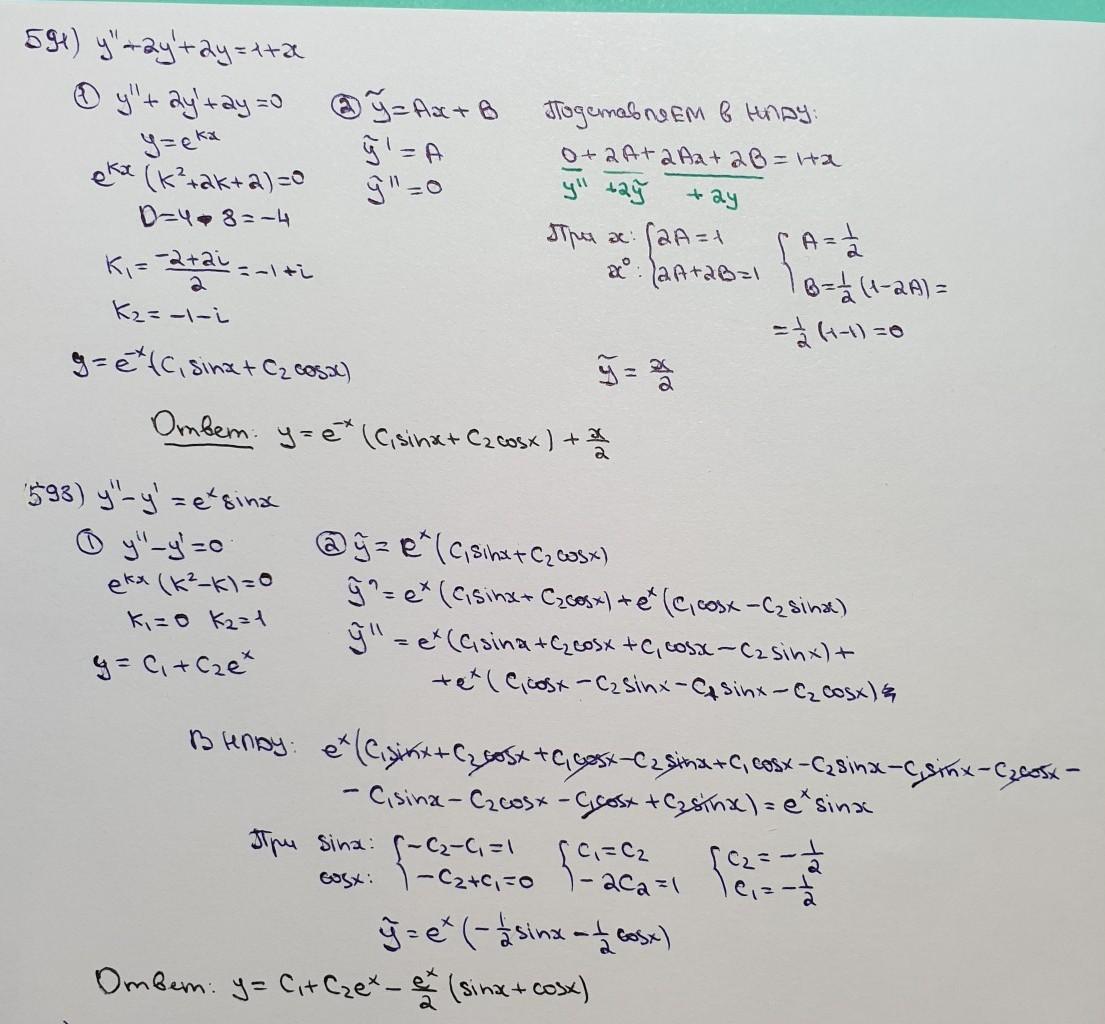 591) y''+2y'+2y=1+x
① y''+2y'+2y=0
y=e^{kx}
e^{kx}(k²+2k+2)=0
D=4-8=-4
K₁=\frac{-2+2i}{2}=-1+i
K₂=-1-i
y=e^{-x}(C₁sinx+C₂cosx)
② ỹ=Ax+B
ỹ'=A
ỹ''=0
Подставляем в НЛДУ:
0+2A+2Ax+2B=1+x
y'' +2ỹ +2y
При x: {2A=1
x⁰: {2A+2B=1
{A=\frac{1}{2}
B=\frac{1}{2}(1-2A)=
=\frac{1}{2}(1-1)=0
ỹ=\frac{x}{2}
Ответ: y=e^{-x}(C₁sinx+C₂cosx)+\frac{x}{2}
593) y''-y'=e^x sinx
① y''-y'=0
e^{kx}(k²-k)=0
K₁=0 K₂=1
y=C₁+C₂e^x
② ỹ=e^x(C₁sinx+C₂cosx)
ỹ'=e^x(C₁sinx+C₂cosx)+e^x(C₁cosx-C₂sinx)
ỹ''=e^x(C₁sinx+C₂cosx+C₁cosx-C₂sinx)+
+e^x(C₁cosx-C₂sinx-C₁sinx-C₂cosx)
В НЛДУ: e^x(C₁sinx+C₂cosx+C₁cosx-C₂sinx+C₁cosx-C₂sinx-C₁sinx-C₂cosx-
-C₁sinx-C₂cosx-C₁cosx+C₂sinx)=e^x sinx
При sinx: {-C₂-C₁=1 {C₁=C₂ {C₂=-\frac{1}{2}
cosx: {-C₂+C₁=0 {-2C₂=1 {C₁=-\frac{1}{2}
ỹ=e^x(-\frac{1}{2}sinx-\frac{1}{2}cosx)
Ответ: y=C₁+C₂e^x-\frac{e^x}{2}(sinx+cosx)